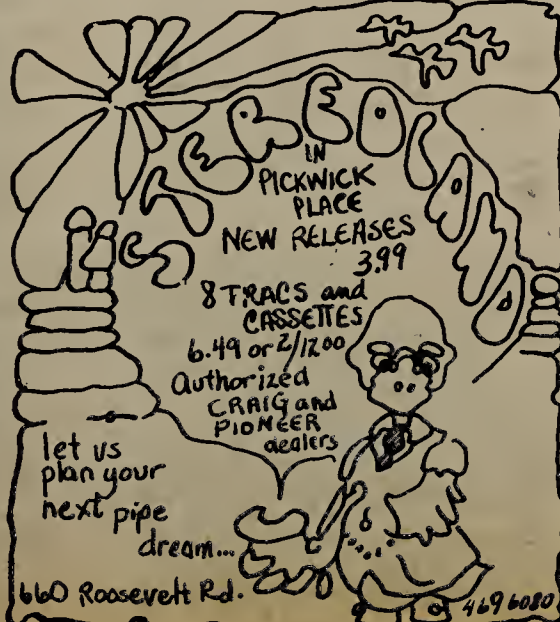 STEREOLAND
IN
PICKWICK
PLACE
NEW RELEASES
3.99
8 TRACS and
CASSETTES
6.49 or 2/12.00
Authorized
CRAIG and
PIONEER
dealers
let us
plan your
next pipe
dream...
660 Roosevelt Rd.
469 6080